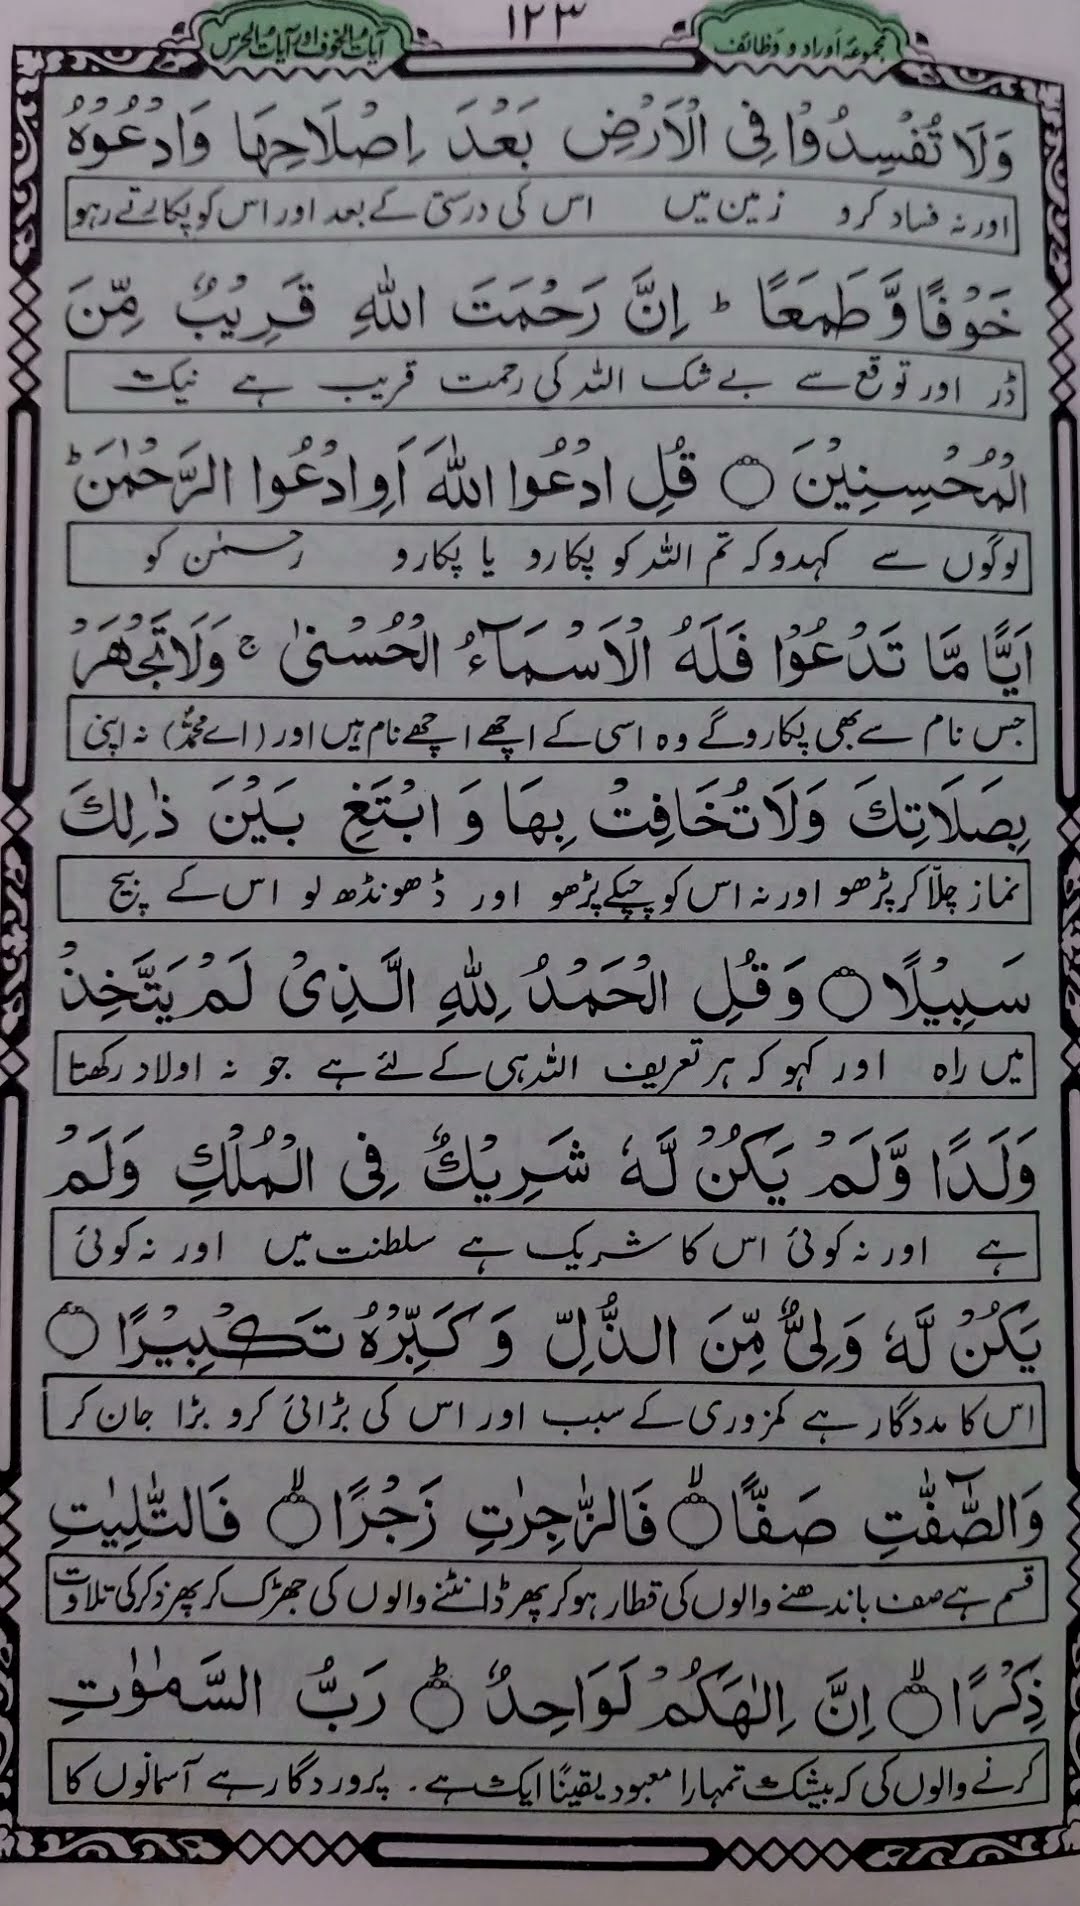 مجموعہ اوراد و وظائف
۱۲۳
آیات الخوف اور آیات الحرس
وَلَا تُفْسِدُوْا فِی الْاَرْضِ بَعْدَ اِصْلَاحِهَا وَادْعُوْهُ
اور نہ فساد کرو زمین میں اس کی درستی کے بعد اور اس کو پکارتے رہو
خَوْفًا وَّطَمَعًا ؕ اِنَّ رَحْمَتَ اللّٰهِ قَرِيْبٌ مِّنَ
ڈر اور توقع سے بے شک اللہ کی رحمت قریب ہے نیک
الْمُحْسِنِيْنَ ۝ قُلِ ادْعُوا اللّٰهَ اَوِ ادْعُوا الرَّحْمٰنَ ؕ
لوگوں سے کہدو کہ تم اللہ کو پکارو یا پکارو رحمٰن کو
اَيًّا مَّا تَدْعُوْا فَلَهُ الْاَسْمَآءُ الْحُسْنٰى ۚ وَلَا تَجْهَرْ
جس نام سے بھی پکارو گے وہ اسی کے اچھے اچھے نام ہیں اور (اے محمدؐ) نہ اپنی
بِصَلَاتِكَ وَلَا تُخَافِتْ بِهَا وَ ابْتَغِ بَيْنَ ذٰلِكَ
نماز چلّا کر پڑھو اور نہ اس کو چپکے پڑھو اور ڈھونڈھ لو اس کے بیچ
سَبِيْلًا ۝ وَقُلِ الْحَمْدُ لِلّٰهِ الَّذِیْ لَمْ يَتَّخِذْ
میں راہ اور کہو کہ ہر تعریف اللہ ہی کے لئے ہے جو نہ اولاد رکھتا
وَلَدًا وَّلَمْ يَكُنْ لَّهٗ شَرِيْكٌ فِی الْمُلْكِ وَلَمْ
ہے اور نہ کوئی اس کا شریک ہے سلطنت میں اور نہ کوئی
يَكُنْ لَّهٗ وَلِیٌّ مِّنَ الذُّلِّ وَ كَبِّرْهُ تَكْبِيْرًا ۝
اس کا مددگار ہے کمزوری کے سبب اور اس کی بڑائی کرو بڑا جان کر
وَالصّٰٓفّٰتِ صَفًّا ۝ۙ فَالزّٰجِرٰتِ زَجْرًا ۝ۙ فَالتّٰلِيٰتِ
قسم ہے صف باندھنے والوں کی قطار ہو کر پھر ڈانٹنے والوں کی جھڑک کر پھر ذکر کی تلاوت
ذِكْرًا ۝ۙ اِنَّ اِلٰهَكُمْ لَوَاحِدٌ ۝ؕ رَبُّ السَّمٰوٰتِ
کرنے والوں کی کہ بیشک تمہارا معبود یقینًا ایک ہے۔ پروردگار ہے آسمانوں کا